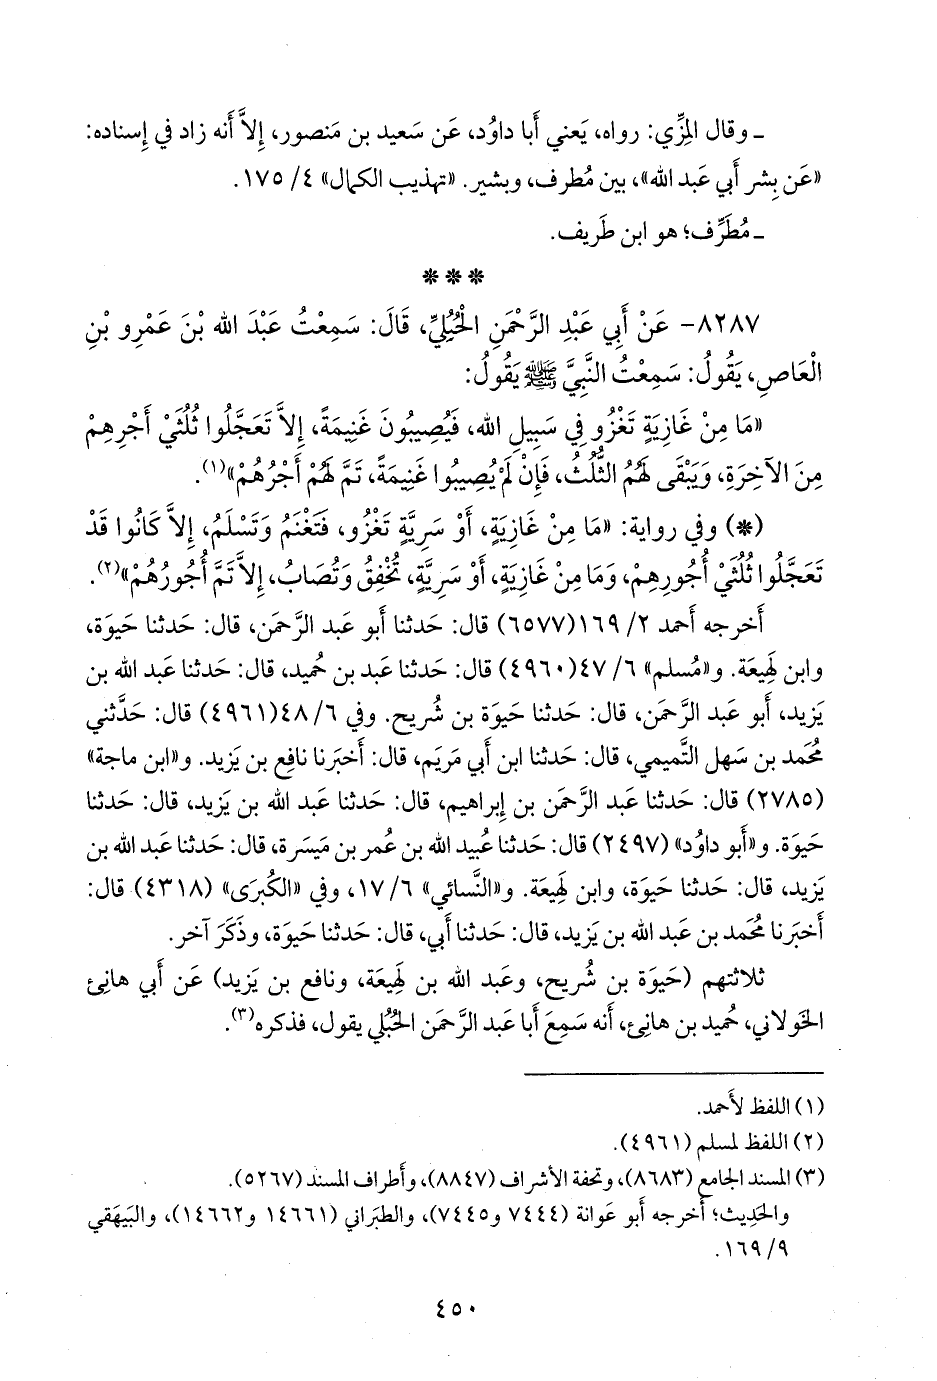 ـ وقال المِزِّي: رواه، يَعني أَبا داوُد، عَن سَعيد بن مَنصور، إِلاَّ أَنه زاد في إِسناده:
«عَن بِشر أَبي عَبد الله»، بين مُطرف، وبشير. «تهذيب الكمال» ٤/ ١٧٥.
ـ مُطَرِّف؛ هو ابن طَريف.
***
٨٢٨٧- عَنْ أَبِي عَبْدِ الرَّحْمَنِ الْحُبُلِيِّ، قَالَ: سَمِعْتُ عَبْدَ الله بْنَ عَمْرِو بْنِ
الْعَاصِ، يَقُولُ: سَمِعْتُ النَّبِيَّ ﷺ يَقُولُ:
«مَا مِنْ غَازِيَةٍ تَغْزُو فِي سَبِيلِ الله، فَيُصِيبُونَ غَنِيمَةً، إِلاَّ تَعَجَّلُوا ثُلُثَيْ أَجْرِهِمْ
مِنَ الآخِرَةِ، وَيَبْقَى لَهُمُ الثُّلُثُ، فَإِنْ لَمْ يُصِيبُوا غَنِيمَةً، تَمَّ لَهُمْ أَجْرُهُمْ»(١).
(*) وفي رواية: «مَا مِنْ غَازِيَةٍ، أَوْ سَرِيَّةٍ تَغْزُو، فَتَغْنَمُ وَتَسْلَمُ، إِلاَّ كَانُوا قَدْ
تَعَجَّلُوا ثُلُثَيْ أُجُورِهِمْ، وَمَا مِنْ غَازِيَةٍ، أَوْ سَرِيَّةٍ، تُخْفِقُ وَتُصَابُ، إِلاَّ تَمَّ أُجُورُهُمْ»(٢).
أَخرجه أَحمد ٢/ ١٦٩(٦٥٧٧) قال: حَدثنا أَبو عَبد الرَّحمَن، قال: حَدثنا حَيوَة،
وابن لَهِيعَة. و«مُسلم» ٦/ ٤٧(٤٩٦٠) قال: حَدثنا عَبد بن حُميد، قال: حَدثنا عَبد الله بن
يَزيد، أَبو عَبد الرَّحمَن، قال: حَدثنا حَيوَة بن شُريح. وفي ٦/ ٤٨(٤٩٦١) قال: حَدَّثني
مُحمد بن سَهل التَّميمي، قال: حَدثنا ابن أَبي مَريَم، قال: أَخبَرنا نافِع بن يَزيد. و«ابن ماجة»
(٢٧٨٥) قال: حَدثنا عَبد الرَّحمَن بن إِبراهيم، قال: حَدثنا عَبد الله بن يَزيد، قال: حَدثنا
حَيوَة. و«أَبو داوُد» (٢٤٩٧) قال: حَدثنا عُبيد الله بن عُمر بن مَيسَرة، قال: حَدثنا عَبد الله بن
يَزيد، قال: حَدثنا حَيوَة، وابن لَهِيعَة. و«النَّسائي» ٦/ ١٧، وفي «الكُبرَى» (٤٣١٨) قال:
أَخبَرنا مُحمد بن عَبد الله بن يَزيد، قال: حَدثنا أَبي، قال: حَدثنا حَيوَة، وذَكَرَ آخر.
ثلاثتهم (حَيوَة بن شُريح، وعَبد الله بن لَهِيعَة، ونافع بن يَزيد) عَن أَبي هانِئ
الخَولاني، حُميد بن هانِئ، أَنه سَمِعَ أَبا عَبد الرَّحمَن الحُبُلي يقول، فذكره(٣).
(١) اللفظ لأَحمد.
(٢) اللفظ لمسلم (٤٩٦١).
(٣) المسند الجامع (٨٦٨٣)، وتحفة الأشراف (٨٨٤٧)، وأَطراف المسند (٥٢٦٧).
والحَدِيث؛ أَخرجه أَبو عَوانة (٧٤٤٤ و٧٤٤٥)، والطبَراني (١٤٦٦١ و١٤٦٦٢)، والبَيهَقي
٩/ ١٦٩.
٤٥٠